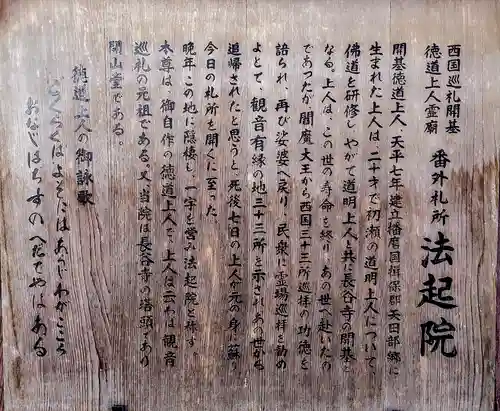 西国巡礼開基
徳道上人霊廟
番外札所
法起院
開基徳道上人、天平七年建立播磨国揖保郡矢田部郷に
生まれた上人は、二十才で初瀬の道明上人について、
佛道を研修し、やがて道明上人と共に長谷寺の開基と
なる。上人は、この世の寿命を終り、あの世へ赴いたの
であったが、閻魔大王から西国三十三所巡拝の功徳を
語られ、再び娑婆へ戻り、民衆に霊場巡拝を勧め
よとて、観音有縁の地三十三所を示され、あの世から
追帰されたと思うと、死後七日の上人が元の身に蘇り
今日の札所を開くに至った。
晩年この地に隠棲し、一宇を営み法起院と称す。
本尊は、御自作の徳道上人で、上人は云わば観音
巡礼の元祖である。又、当院は長谷寺の塔頭であり
開山堂である。
徳道上人の御詠歌
ごくらくはよそにはあらじわがこころ
おなじはちすのへだてやはある